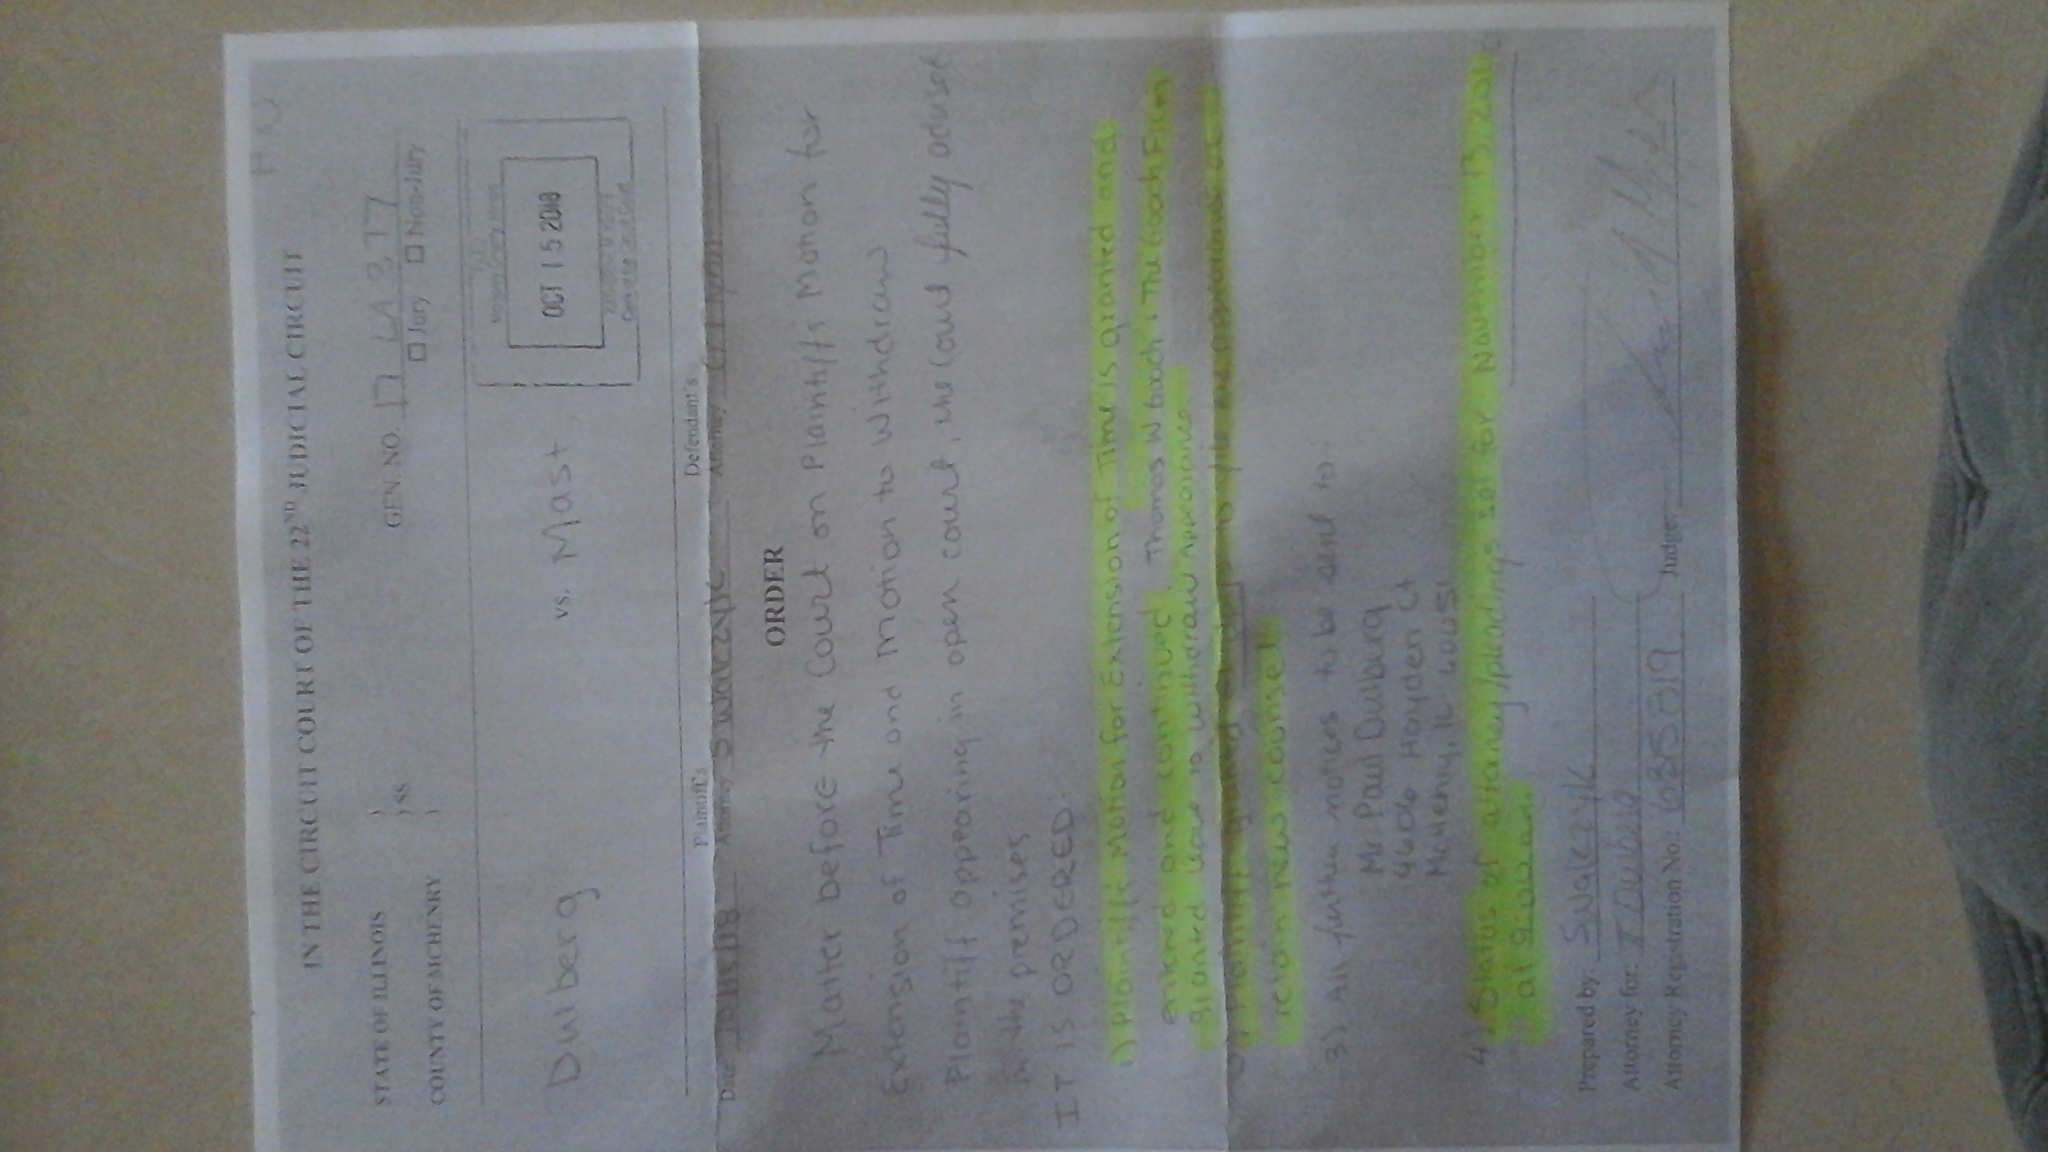 IN THE CIRCUIT COURT OF THE 22ND JUDICIAL CIRCUIT
STATE OF ILLINOIS )
) SS
COUNTY OF MCHENRY )
GEN. NO. 17 LA 377
☐ Jury ☐ Non-Jury
Dulberg vs. Mast
OCT 15 2018
Date 10/15/18 Plaintiff's Attorney Swalczyk Defendant's Attorney
ORDER
Matter before the Court on Plaintiff's Motion for
Extension of Time and Motion to Withdraw
Plaintiff appearing in open court, the court fully advised
in the premises
IT IS ORDERED:
1) Plaintiff's Motion for Extension of Time is granted and
entered and continued. Thomas W Gooch, The Gooch Firm
granted leave to withdraw appearance.
2) Plaintiff granted
retain new counsel
3) All further notices to be send to:
Mr. Paul Dulberg
4606 Hayden Ct
McHenry, IL 60051
4) Status of attorney/pleadings set for November 13, 2018
at 9:00 am
Prepared by: Swalczyk
Attorney for:
Attorney Registration No.: Judge: